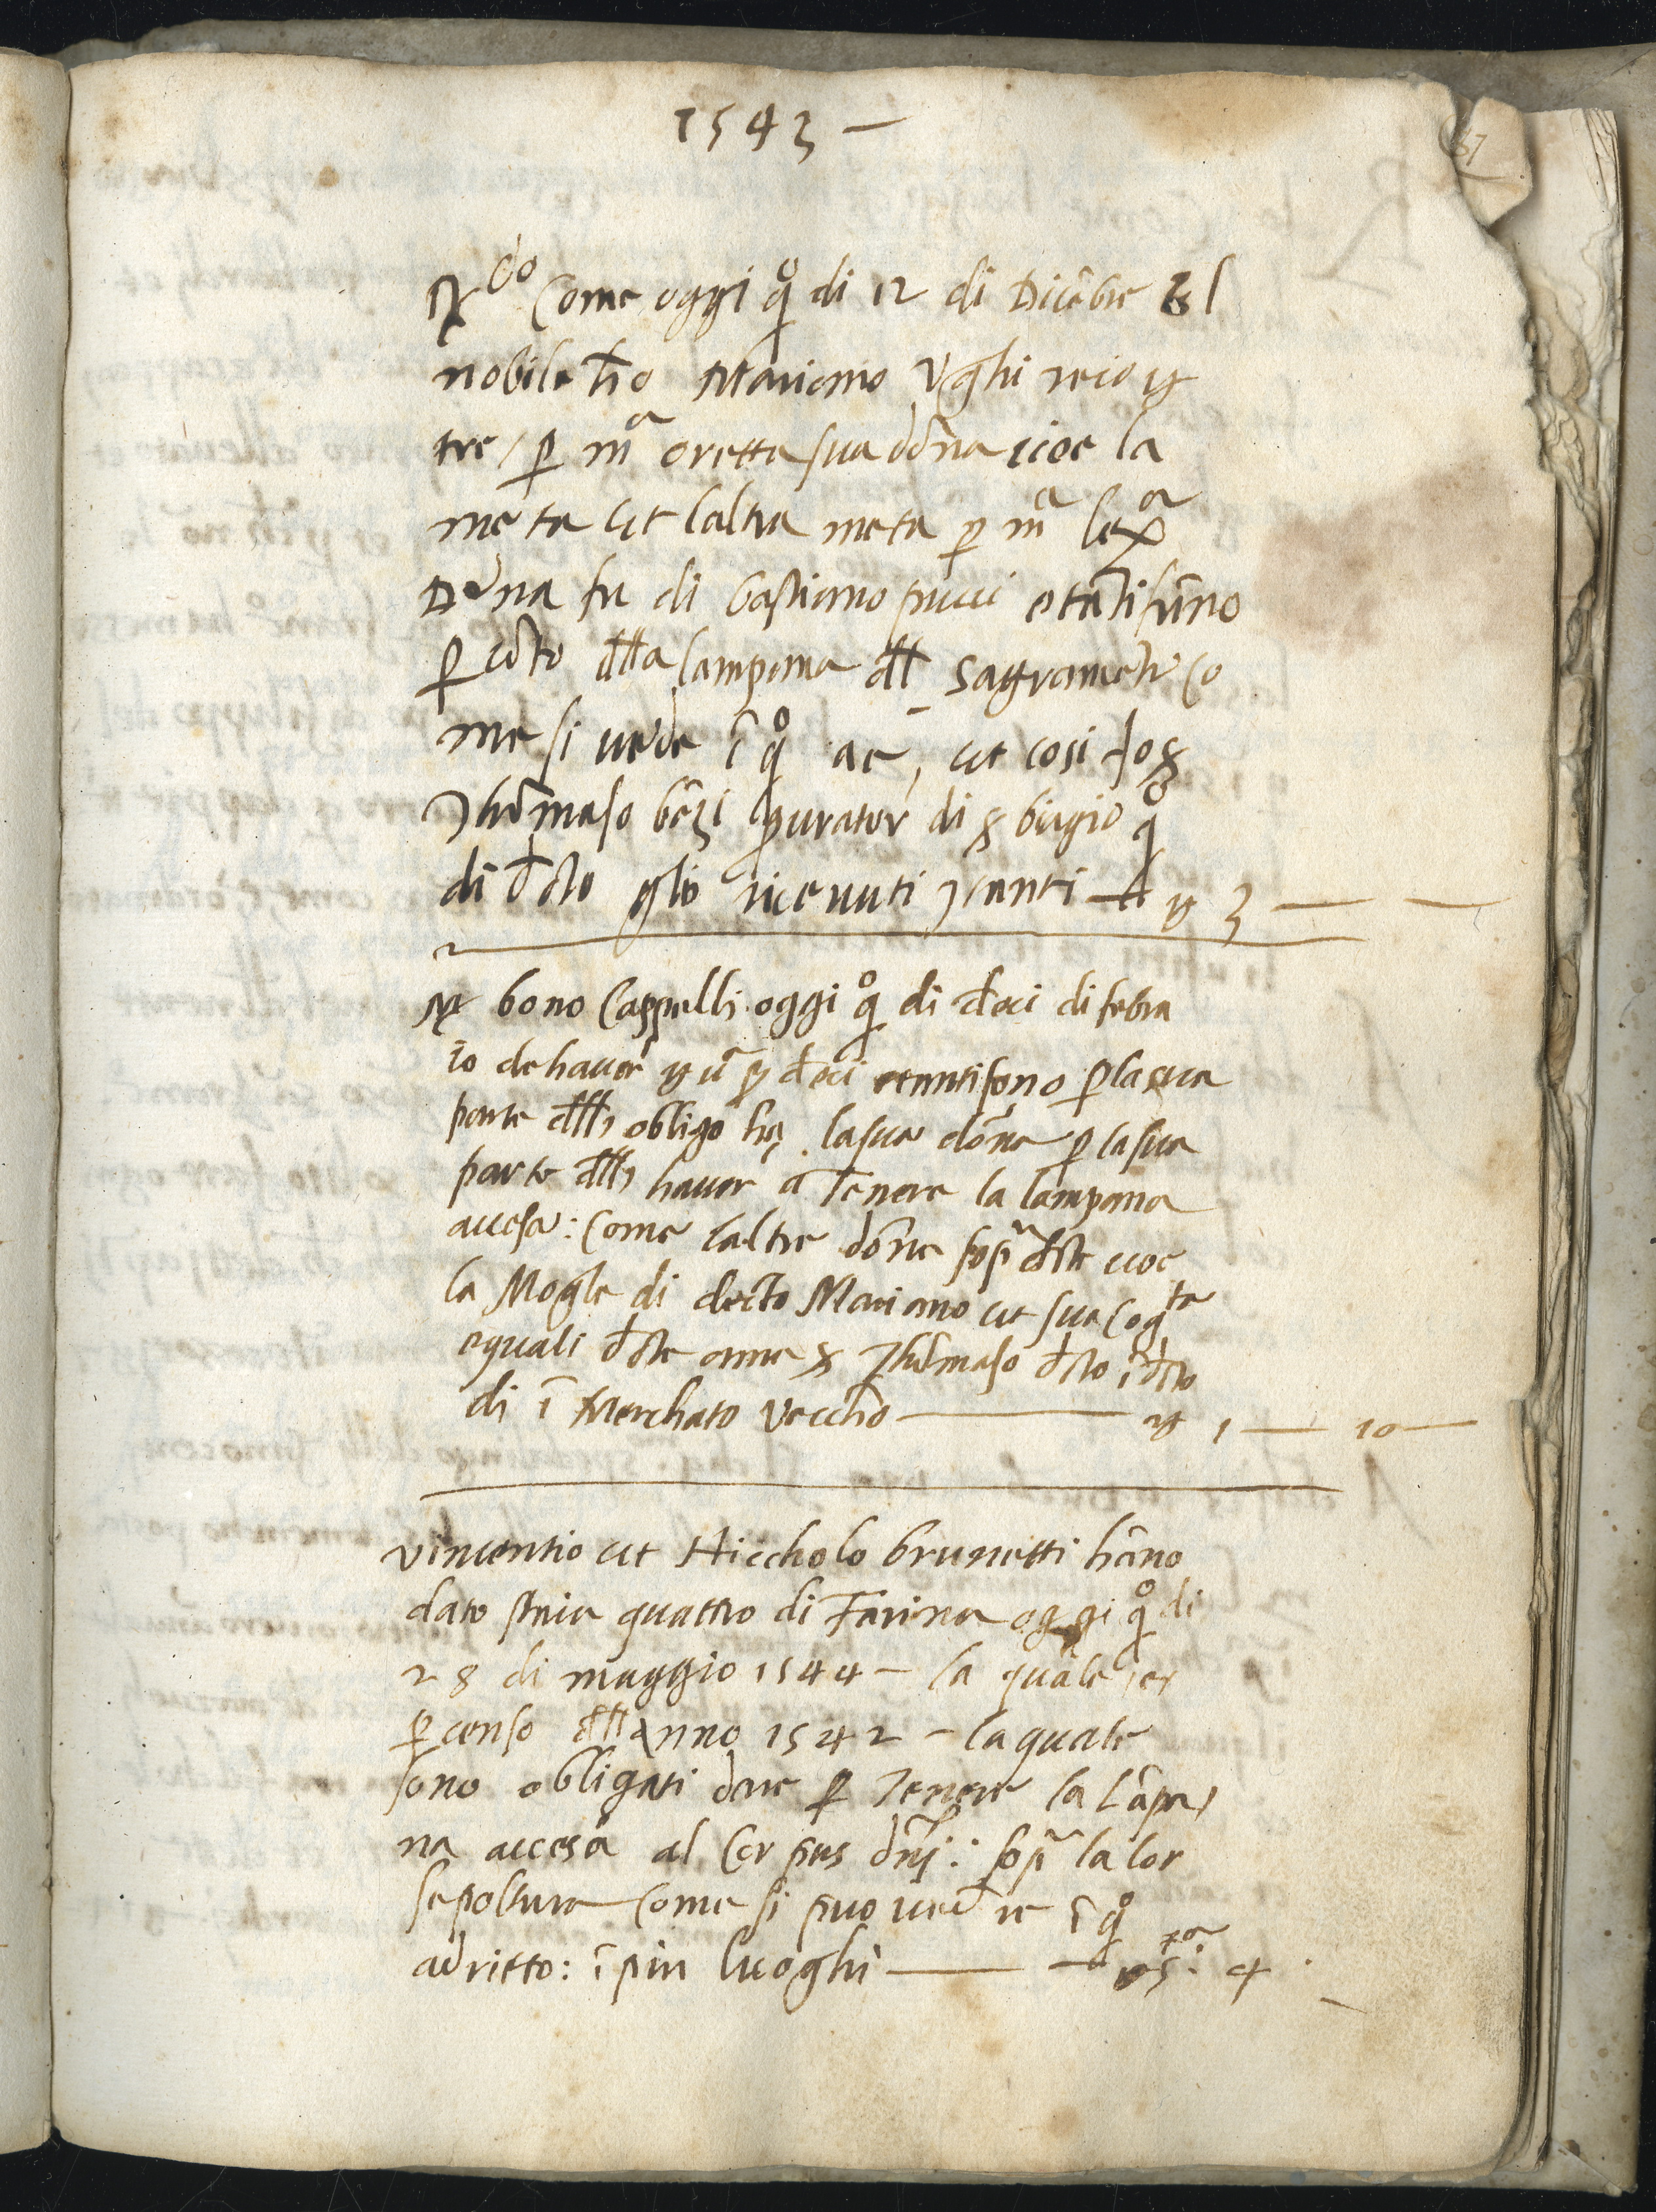 1543 —
67
Rdo Come oggi q° di 12 di Dicēbre El
nobile hō Mariano Vghi reco ∀
tre / p mª oretta sua dōna cioe la
meta et laltra meta p mª lexª
Dōna fu di bastiano pucci e tāti hāno
p cōto dlla lampana dll Sagrameto co
me si vede ī q° ac, et cosi Jo S
Thōmaso bēzi pcurator di S biagio q°
di dcto gli o ricevuti ∀ 3 — —
bono Cappelli oggi q° di dieci di febra
io de haver ∀ ū ß dieci e tanti sono p la sua
parte dll obligo hā la sua dōna p la sua
parte dll haver a Tenere la lampana
accesa: Come laltre dōne sopª dcte cioe
la Mogle di decto Mariano et sua cogta
e quali dcte ame S Thōmaso dcto ī dcto
di ī Merchato Vecchio — ∀ 1 — 10 —
Vincentio et Niccholo brunetti hāno
dato staia quattro di Farina oggi q° di
28 di maggio 1544 — la quale e,
p censo dll Anno 1542 — la quale
sono obligati dare p Tenere la lāpa,
na accesa al Corpus dnj: sopª la lor
sepoltura Come si puo vedere ī q°
adrieto: ī piu luoghi — 4